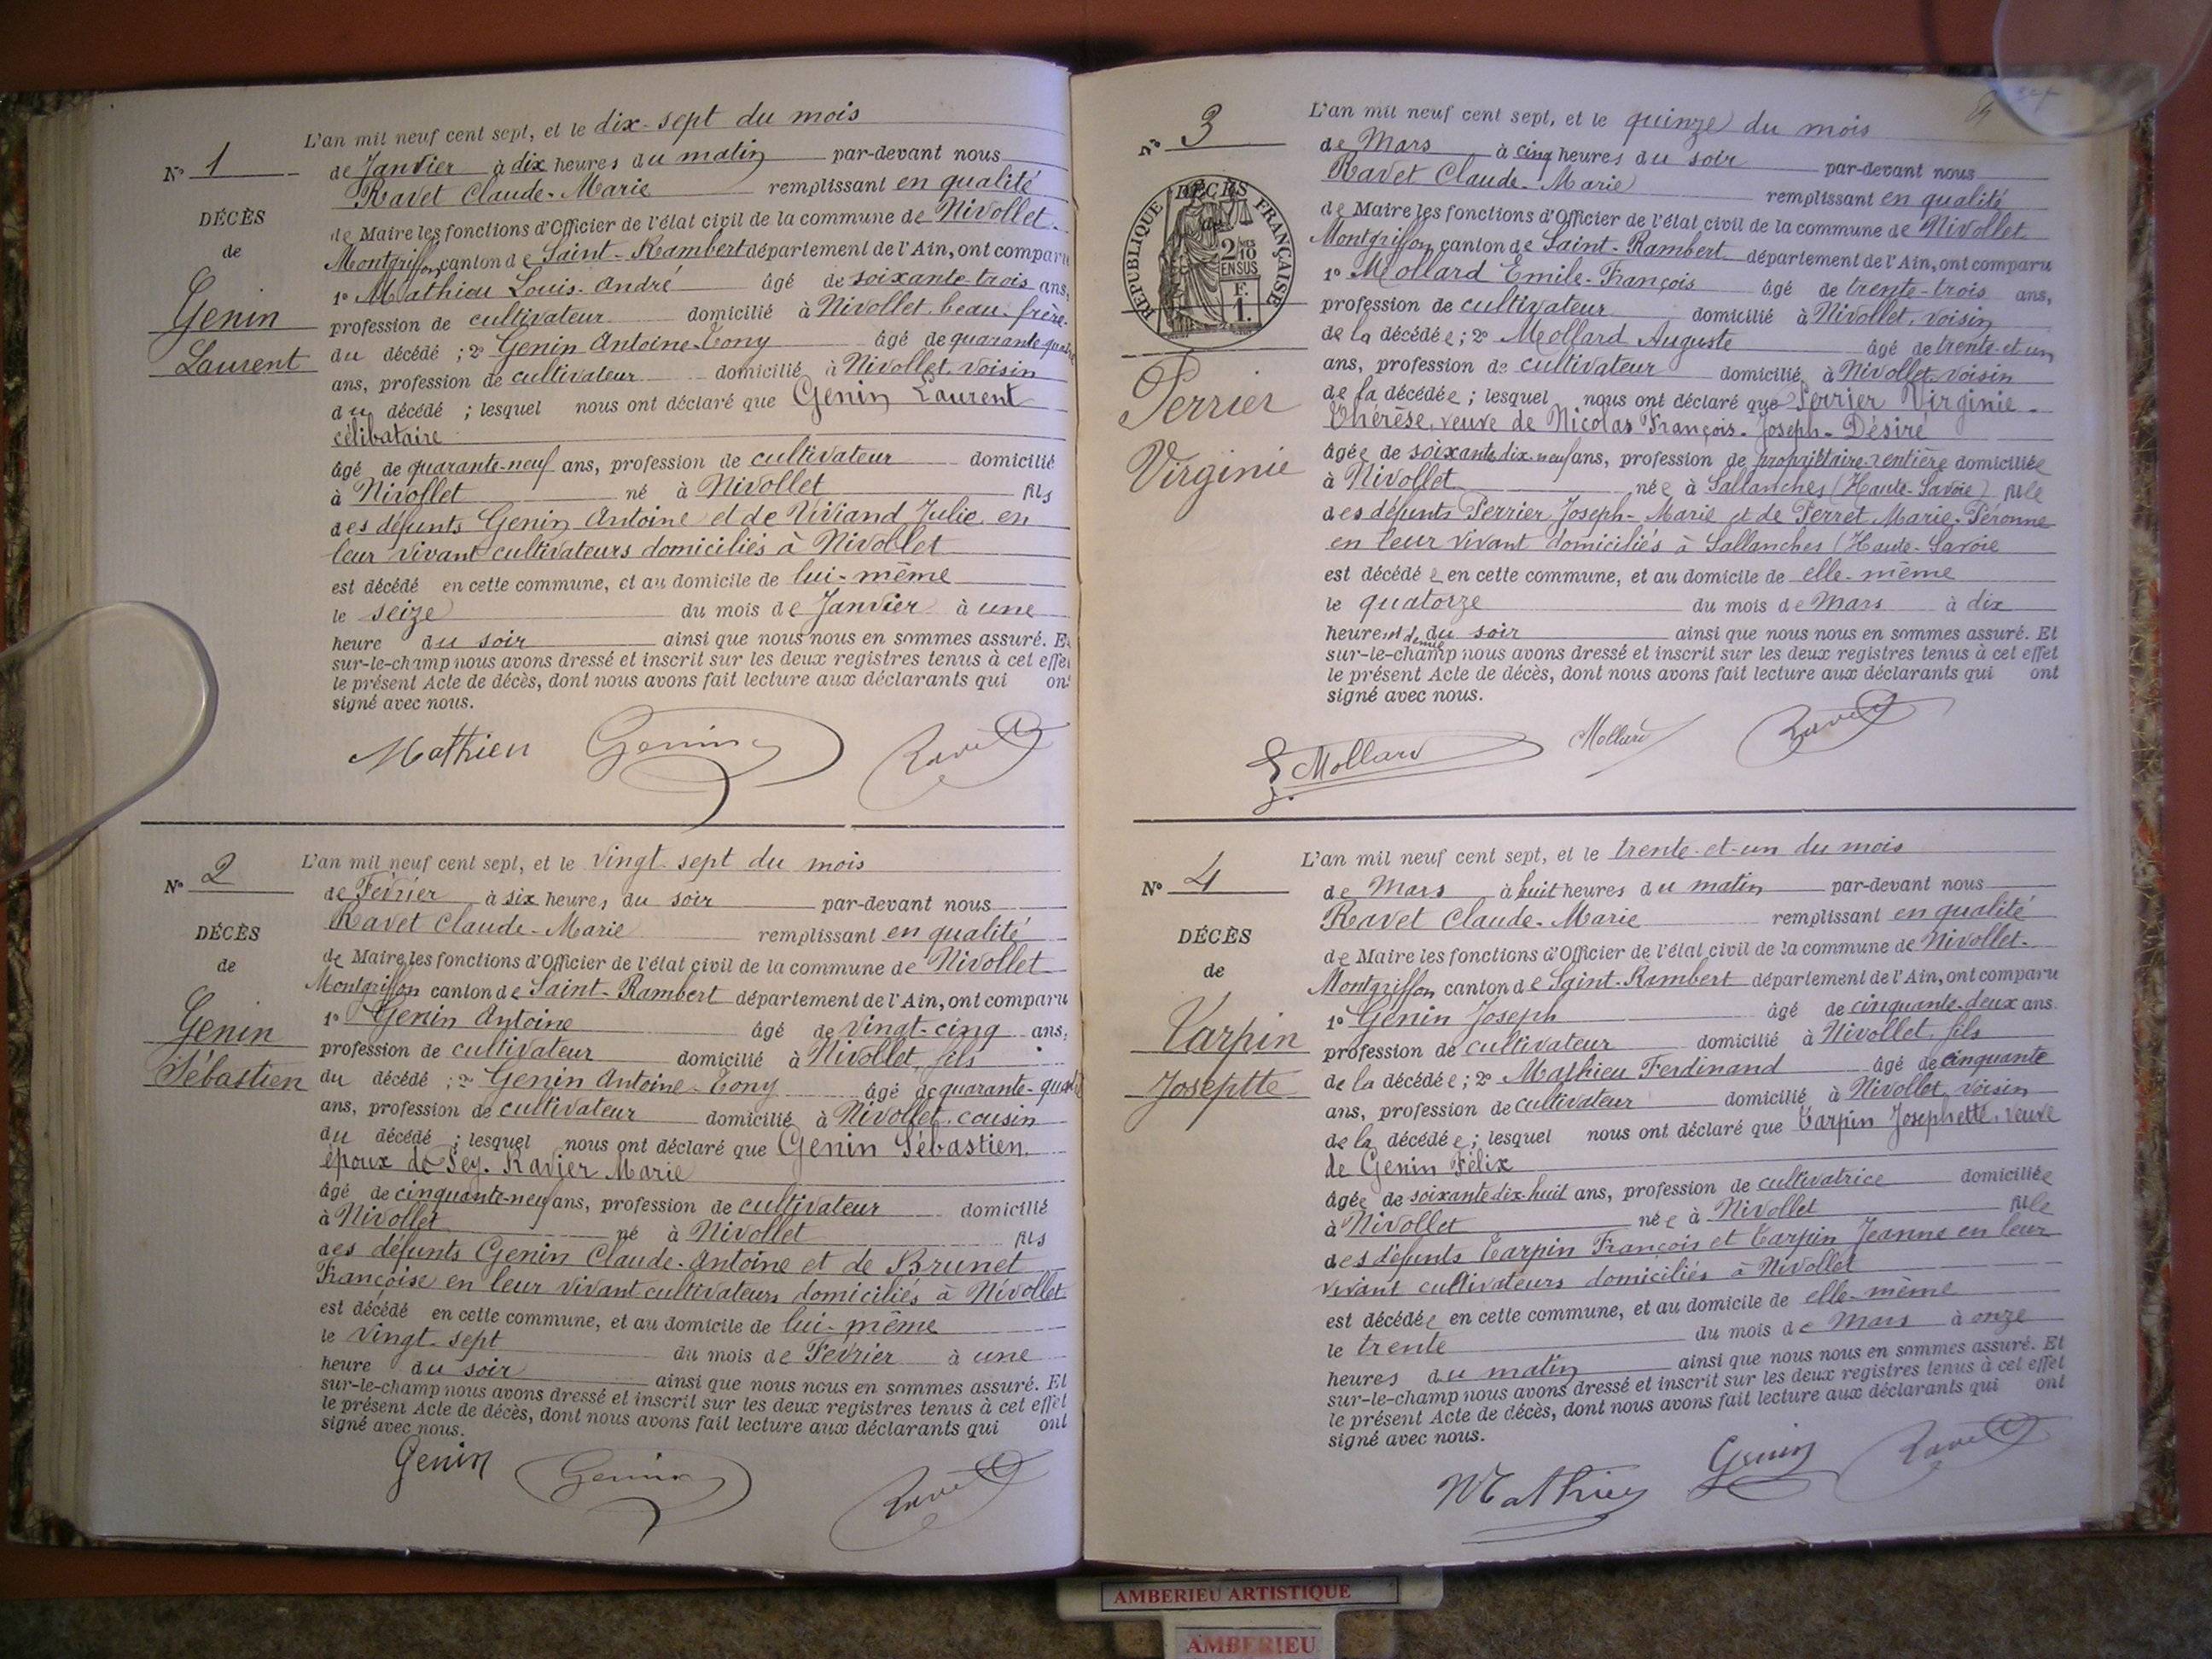 L'an mil neuf cent sept, et le dix-sept du mois
N° 1
de Janvier à dix heures du matin par-devant nous
Ravet Claude-Marie remplissant en qualité
DÉCÈS
de Maire les fonctions d'Officier de l'état civil de la commune de Nivollet-
de
Montgriffon canton de Saint-Rambert département de l'Ain, ont comparu
1° Mathieu Louis-André âgé de soixante-trois ans,
Genin
profession de cultivateur domicilié à Nivollet, beau-frère
Laurent
du décédé ; 2° Genin Antoine-Tony âgé de quarante-quatre
ans, profession de cultivateur domicilié à Nivollet, voisin
du décédé ; lesquel nous ont déclaré que Genin Laurent
célibataire
âgé de quarante-neuf ans, profession de cultivateur domicilié
à Nivollet né à Nivollet fils
des défunts Genin Antoine et de Viviand Julie, en
leur vivant cultivateurs domiciliés à Nivollet
est décédé en cette commune, et au domicile de lui-même
le seize du mois de Janvier à une
heure du soir ainsi que nous nous en sommes assuré. Et
sur-le-champ nous avons dressé et inscrit sur les deux registres tenus à cet effet
le présent Acte de décès, dont nous avons fait lecture aux déclarants qui ont
signé avec nous.
Mathieu Genin Ravet
L'an mil neuf cent sept, et le vingt-sept du mois
N° 2
de Février à six heures du soir par-devant nous
Ravet Claude-Marie remplissant en qualité
DÉCÈS
de Maire les fonctions d'Officier de l'état civil de la commune de Nivollet
de
Montgriffon canton de Saint-Rambert département de l'Ain, ont comparu
1° Genin Antoine âgé de vingt-cinq ans,
Genin
profession de cultivateur domicilié à Nivollet, fils
Sébastien
du décédé ; 2° Genin Antoine-Tony âgé de quarante-quatre
ans, profession de cultivateur domicilié à Nivollet, cousin
du décédé ; lesquel nous ont déclaré que Genin Sébastien,
époux de Pey-Ravier Marie
âgé de cinquante-neuf ans, profession de cultivateur domicilié
à Nivollet né à Nivollet fils
des défunts Genin Claude-Antoine et de Brunet
Françoise en leur vivant cultivateurs domiciliés à Nivollet
est décédé en cette commune, et au domicile de lui-même
le vingt-sept du mois de Février à une
heure du soir ainsi que nous nous en sommes assuré. Et
sur-le-champ nous avons dressé et inscrit sur les deux registres tenus à cet effet
le présent Acte de décès, dont nous avons fait lecture aux déclarants qui ont
signé avec nous.
Genin Genin Ravet
L'an mil neuf cent sept, et le quinze du mois
N° 3
de Mars à cinq heures du soir par-devant nous
Ravet Claude-Marie remplissant en qualité
DÉCÈS
REPUBLIQUE FRANÇAISE
2/10 EN SUS
F. 1.
de Maire les fonctions d'Officier de l'état civil de la commune de Nivollet
Montgriffon canton de Saint-Rambert département de l'Ain, ont comparu
1° Mollard Emile-François âgé de trente-trois ans,
profession de cultivateur domicilié à Nivollet, voisin
de la décédée ; 2° Mollard Auguste âgé de trente-et-un
Perrier
ans, profession de cultivateur domicilié à Nivollet, voisin
de la décédée ; lesquel nous ont déclaré que Perrier Virginie-
Thérèse, veuve de Nicolas François-Joseph-Désiré
Virginie
âgée de soixante dix-neuf ans, profession de propriétaire-rentière domiciliée
à Nivollet née à Sallanches (Haute-Savoie) fille
des défunts Perrier Joseph-Marie et de Perret Marie-Péronne
en leur vivant domiciliés à Sallanches (Haute-Savoie
est décédée en cette commune, et au domicile de elle-même
le quatorze du mois de Mars à dix
heures et demie du soir ainsi que nous nous en sommes assuré. Et
sur-le-champ nous avons dressé et inscrit sur les deux registres tenus à cet effet
le présent Acte de décès, dont nous avons fait lecture aux déclarants qui ont
signé avec nous.
Mollard Mollard Ravet
L'an mil neuf cent sept, et le trente-et-un du mois
N° 4
de Mars à huit heures du matin par-devant nous
Ravet Claude-Marie remplissant en qualité
DÉCÈS
de Maire les fonctions d'Officier de l'état civil de la commune de Nivollet-
de
Montgriffon canton de Saint-Rambert département de l'Ain, ont comparu
1° Genin Joseph âgé de cinquante-deux ans.
Tarpin
profession de cultivateur domicilié à Nivollet, fils
Josephte
de la décédée ; 2° Mathieu Ferdinand âgé de cinquante
ans, profession de cultivateur domicilié à Nivollet, voisin
de la décédée ; lesquel nous ont déclaré que Tarpin Josephette, veuve
de Genin Félix
âgée de soixante dix-huit ans, profession de cultivatrice domiciliée
à Nivollet née à Nivollet fille
des défunts Tarpin François et Tarpin Jeanne en leur
vivant cultivateurs domiciliés à Nivollet
est décédée en cette commune, et au domicile de elle-même
le trente du mois de Mars à onze
heures du matin ainsi que nous nous en sommes assuré. Et
sur-le-champ nous avons dressé et inscrit sur les deux registres tenus à cet effet
le présent Acte de décès, dont nous avons fait lecture aux déclarants qui ont
signé avec nous.
Mathieu Genin Ravet
AMBERIEU ARTISTIQUE
AMBERIEU